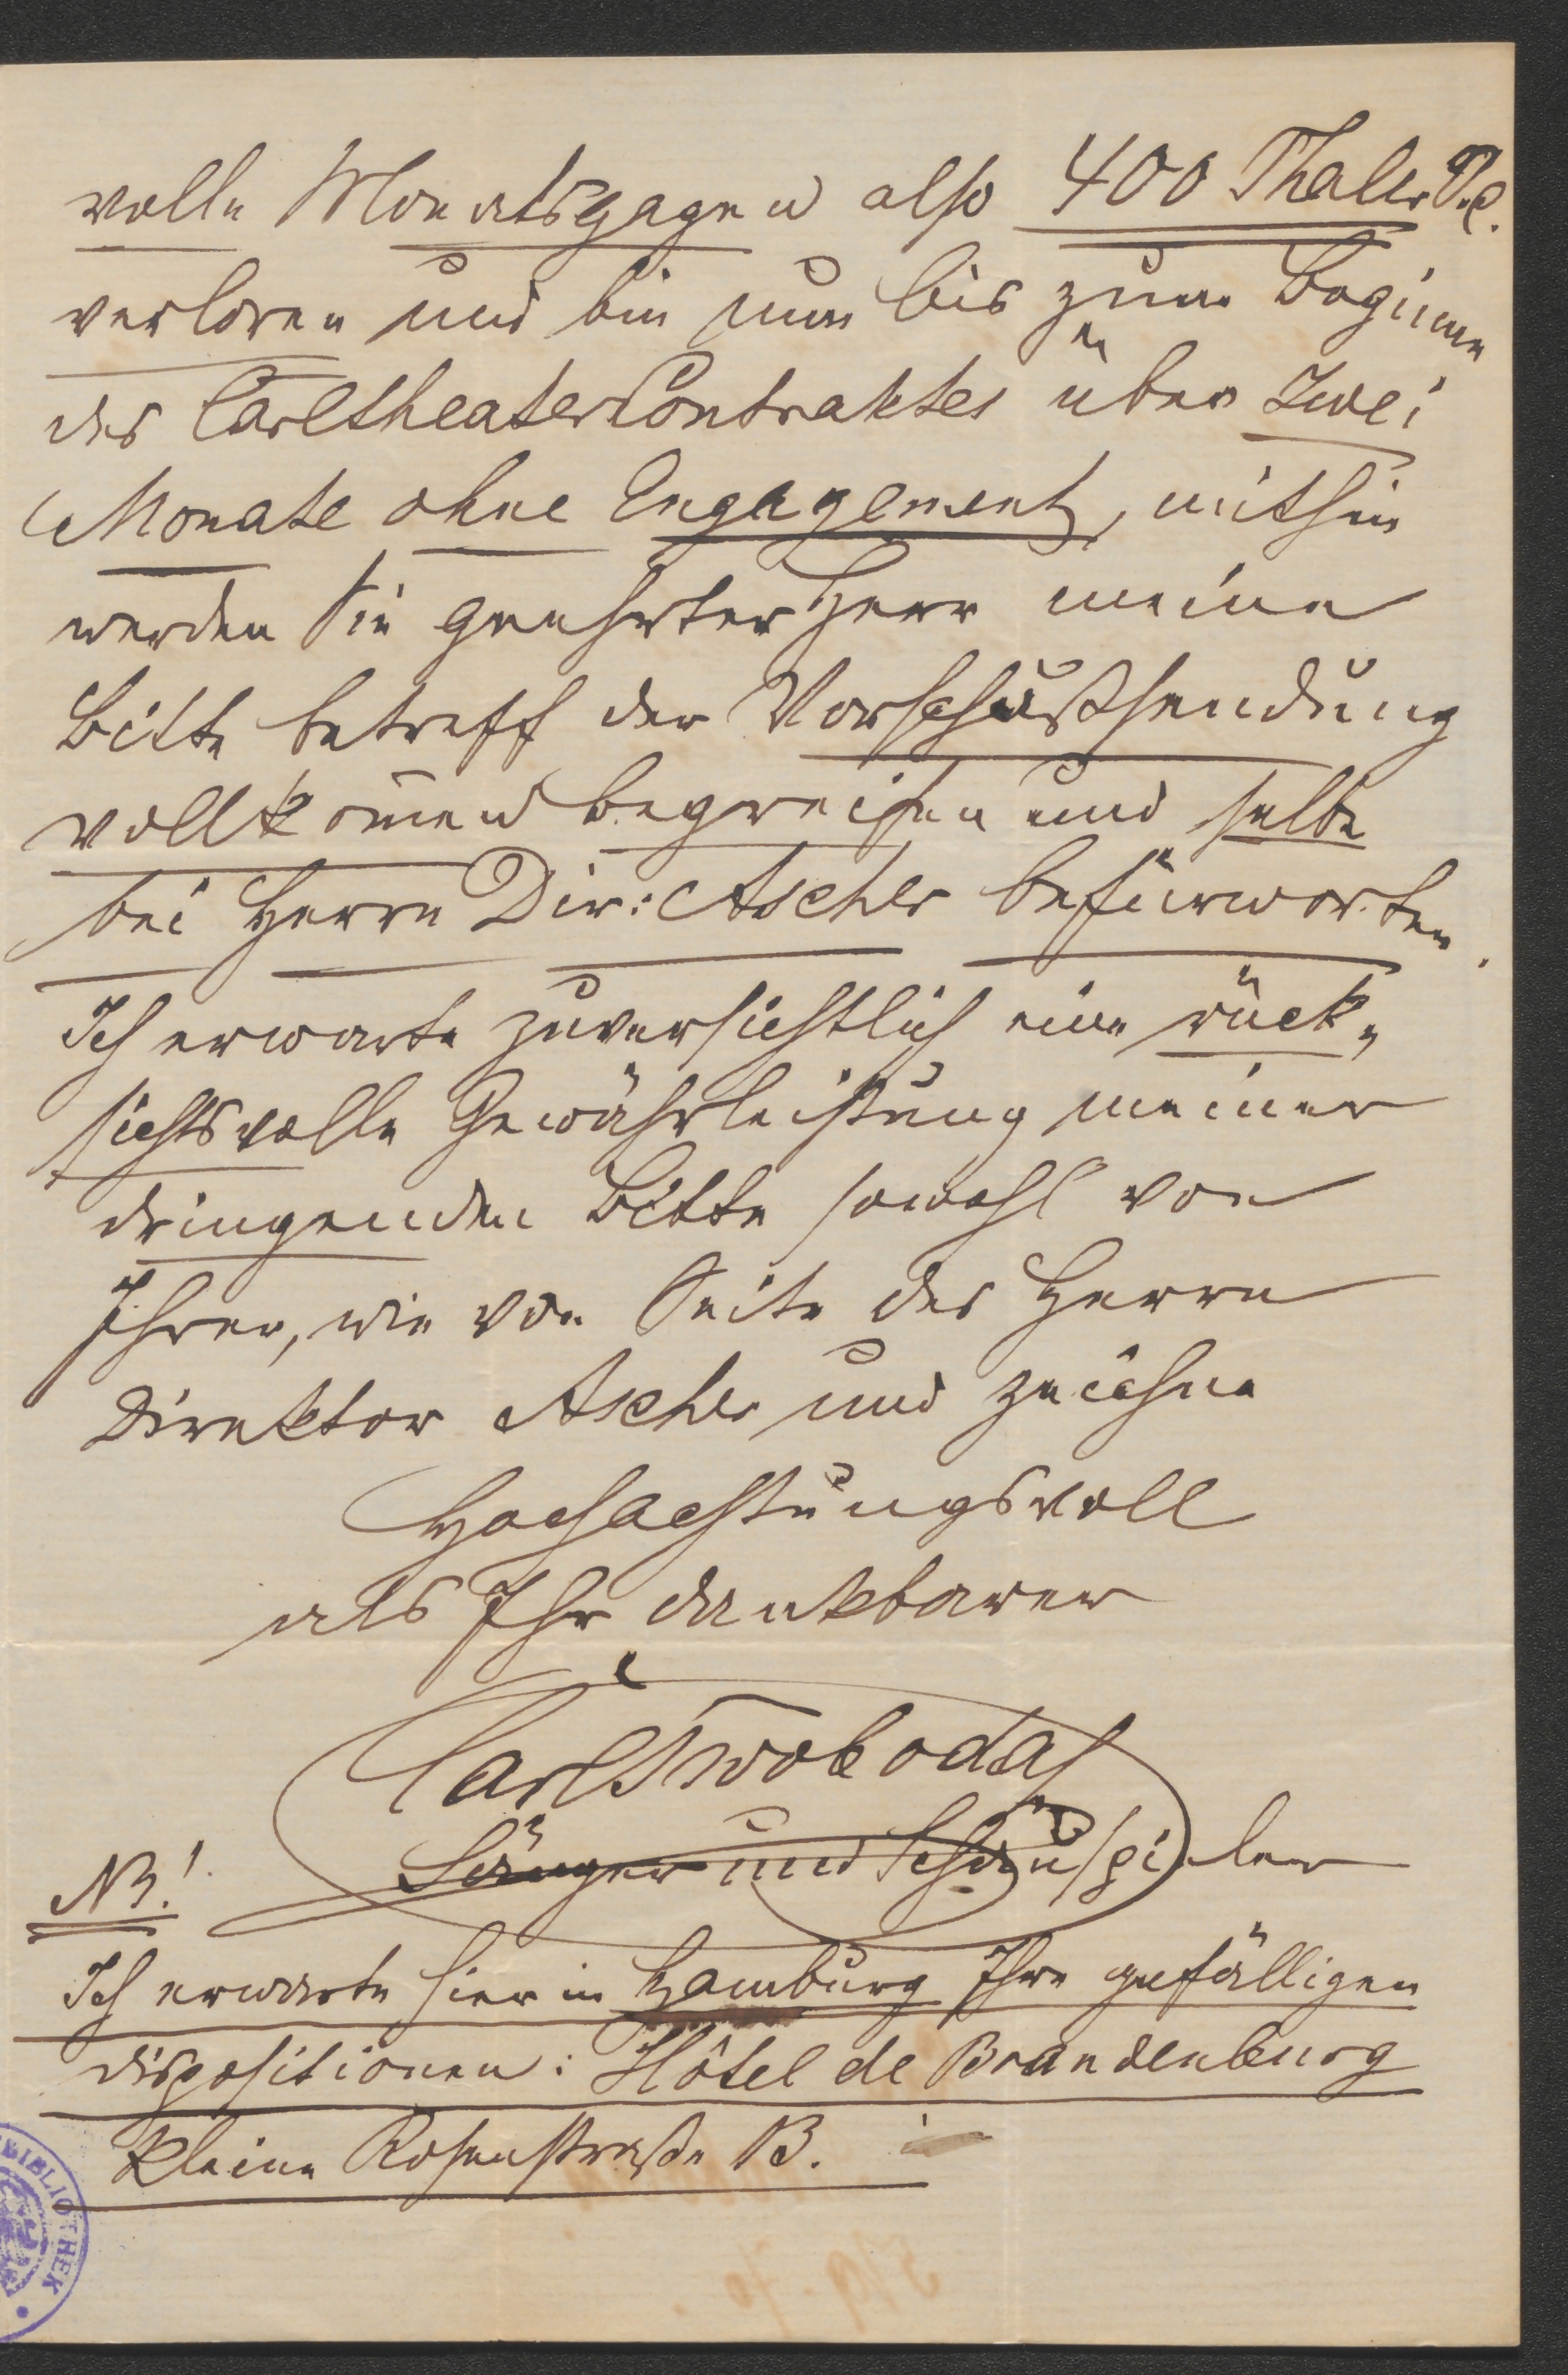 volle Monatsgagen also 400 Thaler Pr.
verloren und bin nun bis zum Beginne
des Carltheater Contraktes über zwei
Monate ohne Engagement, mithin
werden Sie geehrter Herr meine
Bitte betreff der Vorschußsendung
vollkom̅en begreifen und selbe
bei Herrn Dir: Ascher befürworten.
Ich erwarte zuversichtlich eine rück„
sichtsvolle Gewährleistung meiner
dringenden Bitte sowohl von
Ihrer, wie von Seite des Herrn
Direktor Ascher und zeichne
Hochachtungsvoll
als Ihr dankbarer
Carl Swoboda
Sänger und Schauspieler
NB!
Ich erwarte hier in Hamburg Ihre gefälligen
Dispositionen: Hôtel de Brandenburg
Kleine Rosenstraße 13.
BIBLIOTHEK